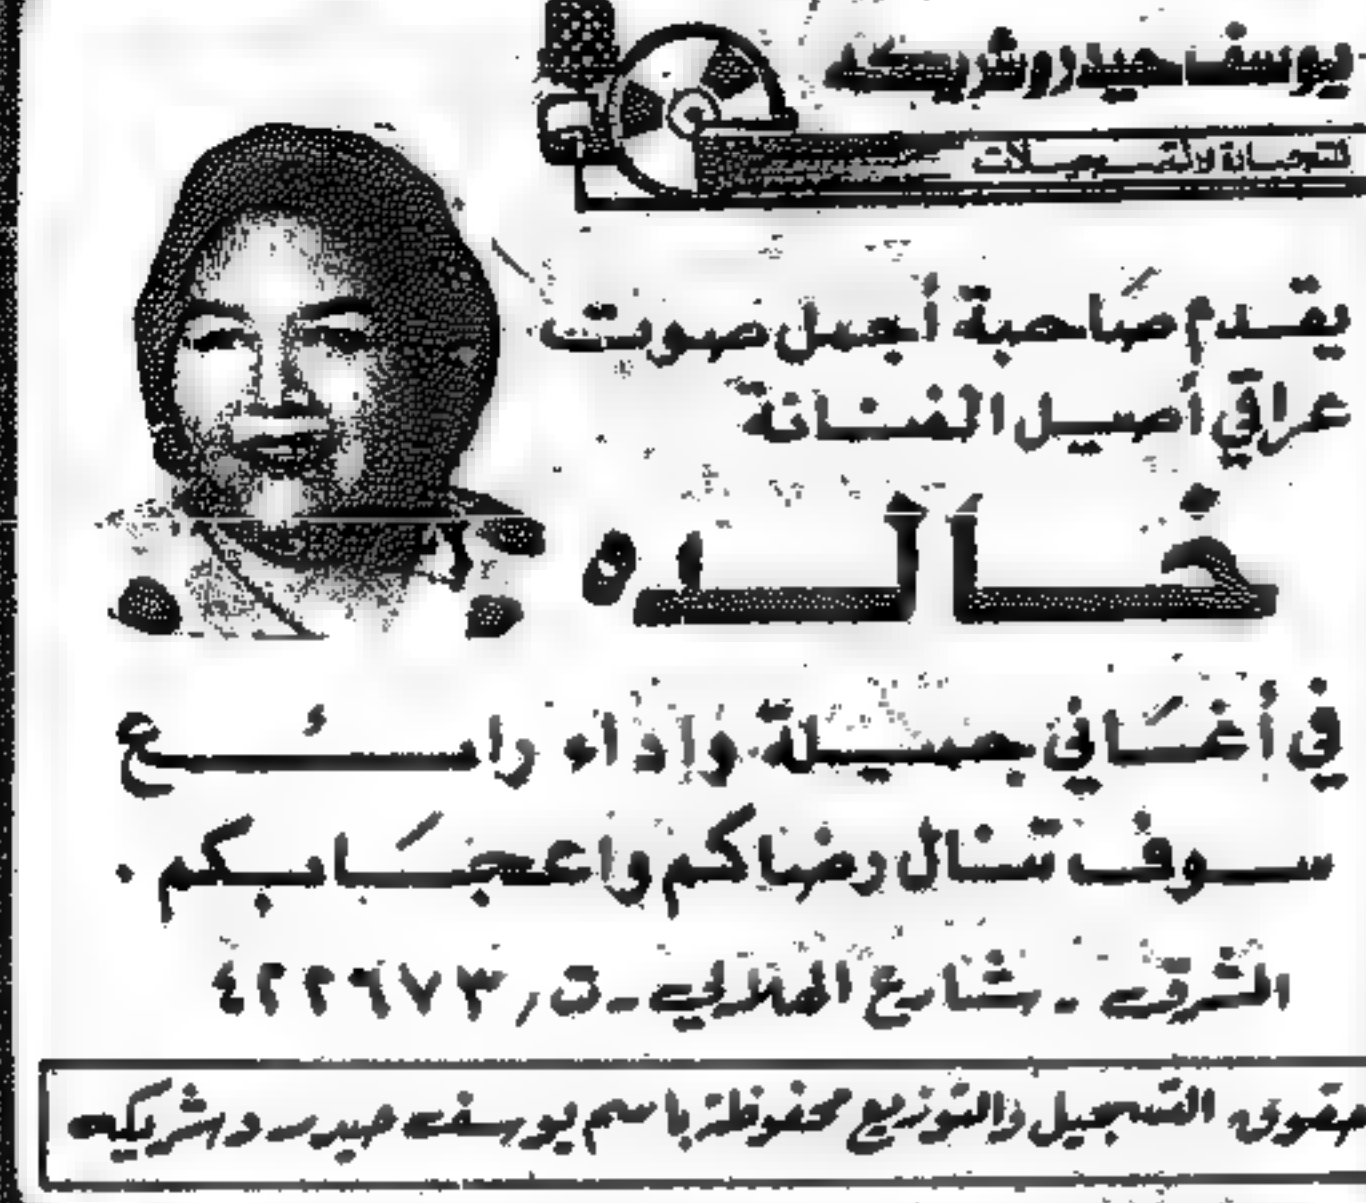 يوسف حيدر وشريكه
للتجارة والتسجيلات
يقدم صَاحبة أجمل صوت
عراقي أصيل الفنانة
خالده
في أغَاني جميلة وإداء رائع
سوف تنال رضاكم واعجَابكم .
الشرق - شارع الهلالي - ت/ ٤٢٢٦٧٣
حقوق التسجيل والتوزيع محفوظة باسم يوسف حيدر وشريكه